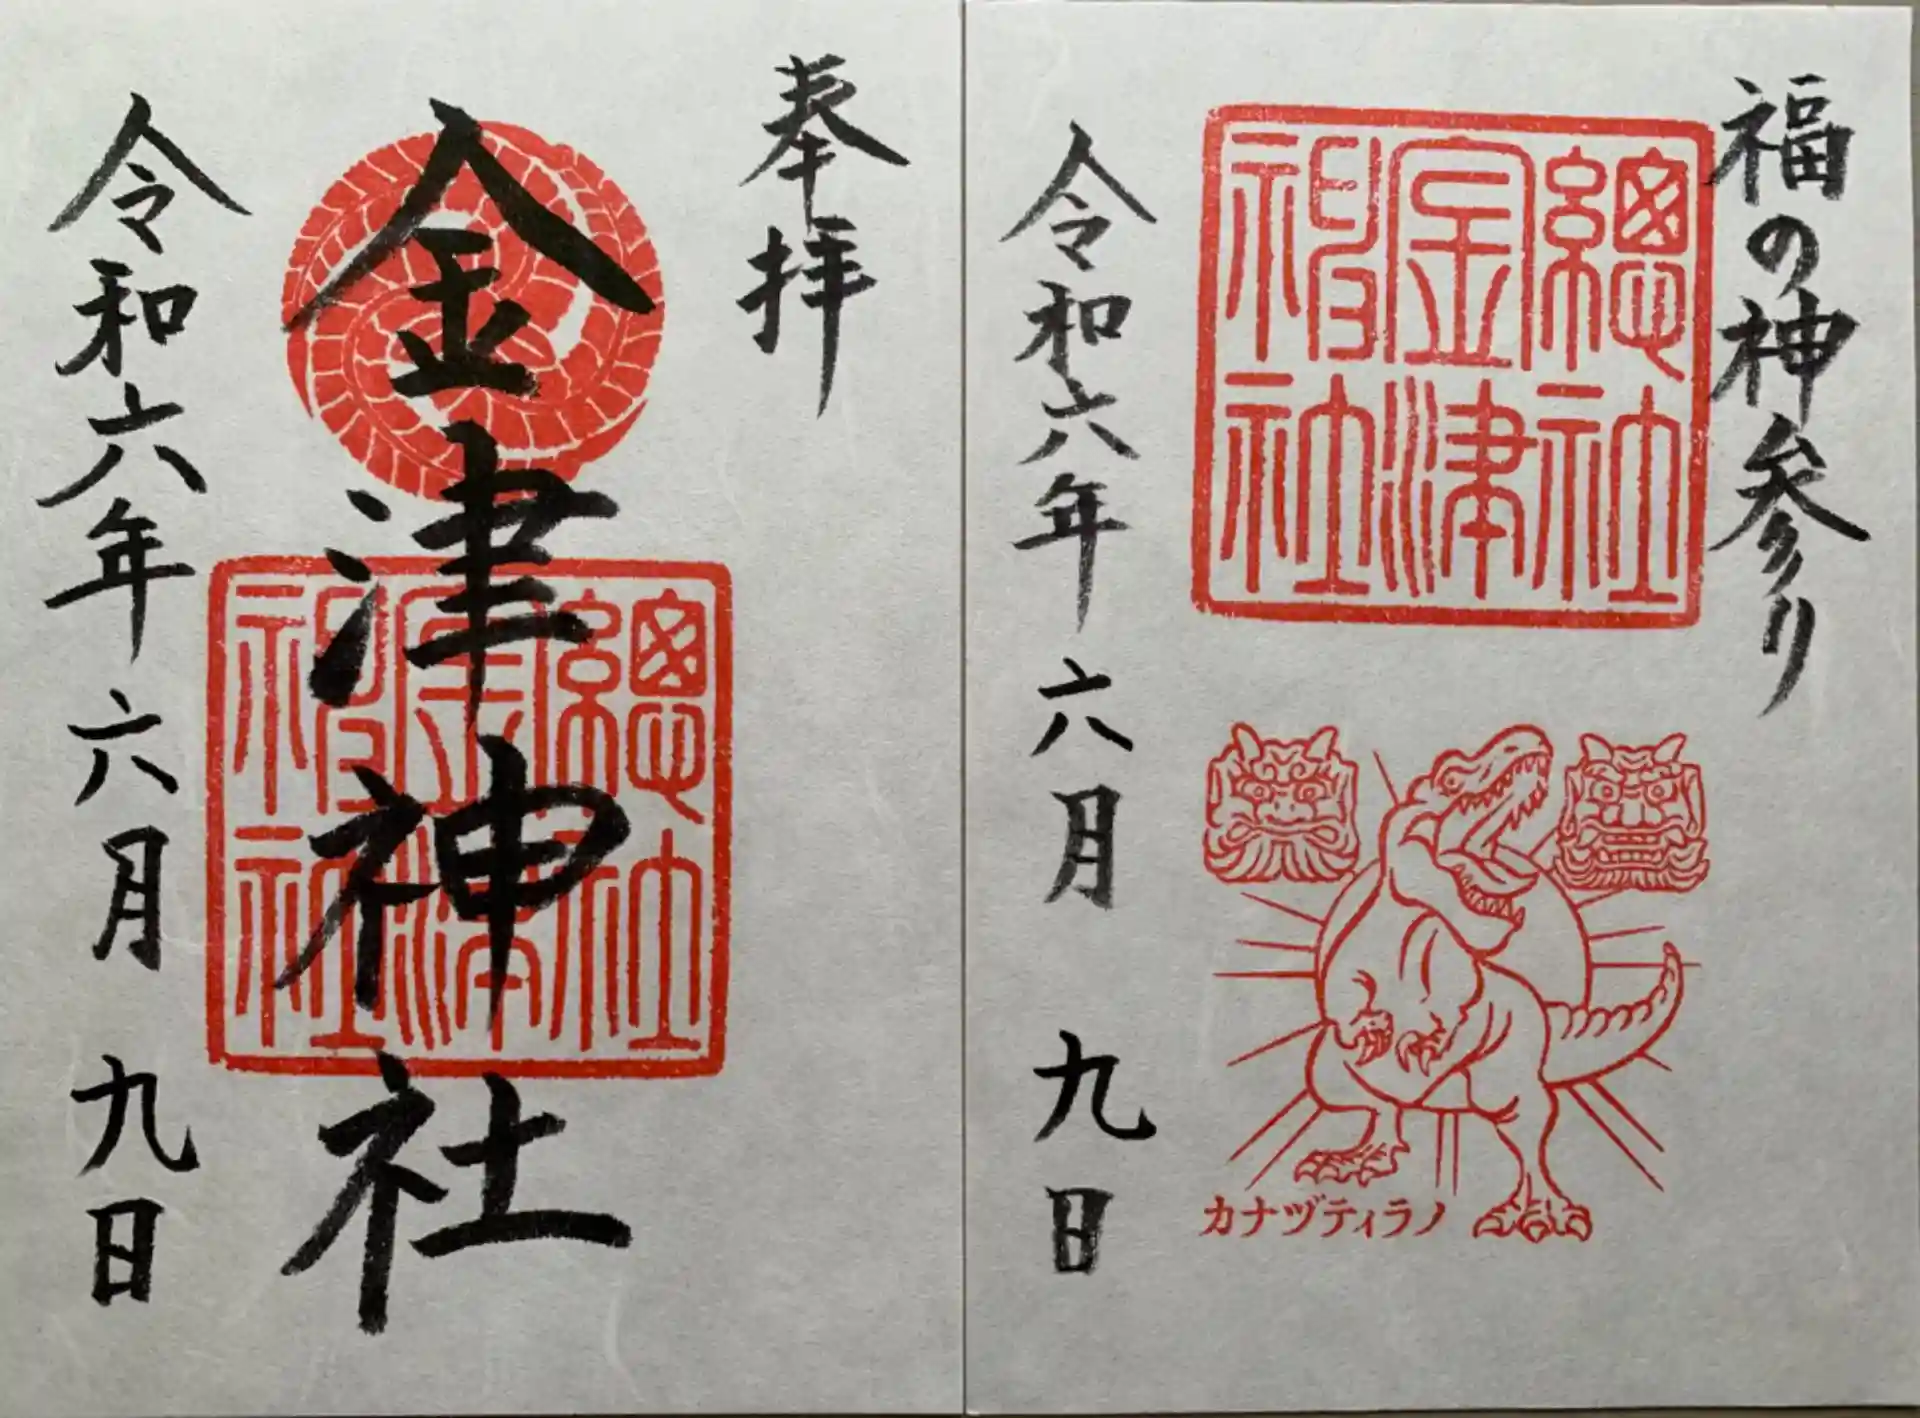 福の神参り
總社
金津
神社
令和六年六月九日
カナヅティラノ
奉拝
金津神社
總社
金津
神社
令和六年六月九日